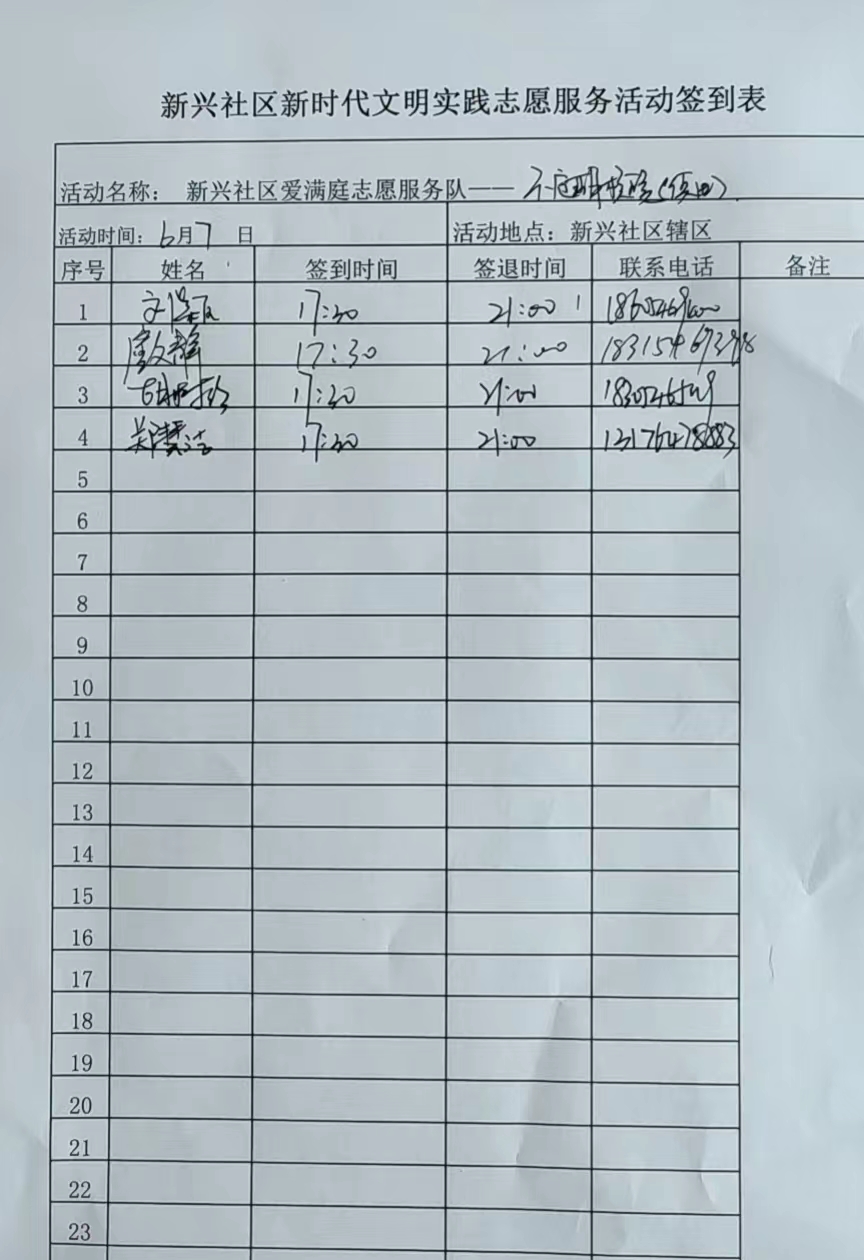 新兴社区新时代文明实践志愿服务活动签到表
活动名称： 新兴社区爱满庭志愿服务队——
活动时间：6月7 日 活动地点：新兴社区辖区
序号 姓名 签到时间 签退时间 联系电话 备注
1 17:30 21:00
2 17:30 21:00
3 17:30 21:00
4 郑慧洁 17:30 21:00 13176478883
5
6
7
8
9
10
11
12
13
14
15
16
17
18
19
20
21
22
23